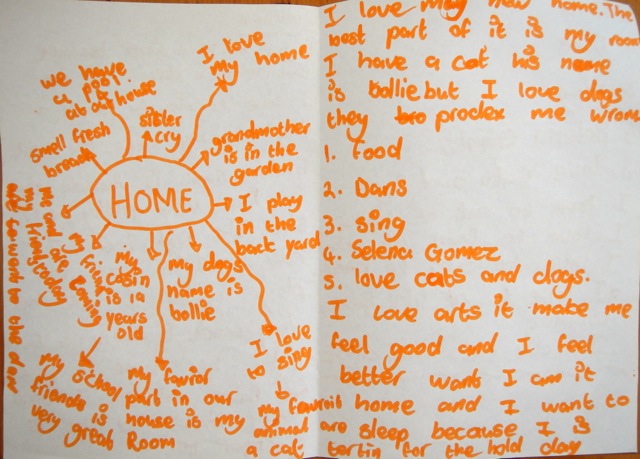 we have
a pool
at a house
sister
cry
I love
my home
smell fresh
bread
grandmother
is in the
garden
HOME
I play
in the
back yard
me and
my friend
are today
went to the
my friend
is coming
my
cosin
is 19
years
old
my dogs
name is
bollie
I love
to sing
my school
friends is
very great
my favior
part in our
house is my
Room
my favrait
animal are
a cat
I love my new home. The
best part of it is my room
I have a cat his name
is bollie but I love dogs
they bro prodex me wrom
1. food
2. Dans
3. sing
4. Selena Gomez
5. love cats and dogs.
I love arts it make me
feel good and I feel
better want I am it
home and I want to
sleep because I is
tartin for the hold day